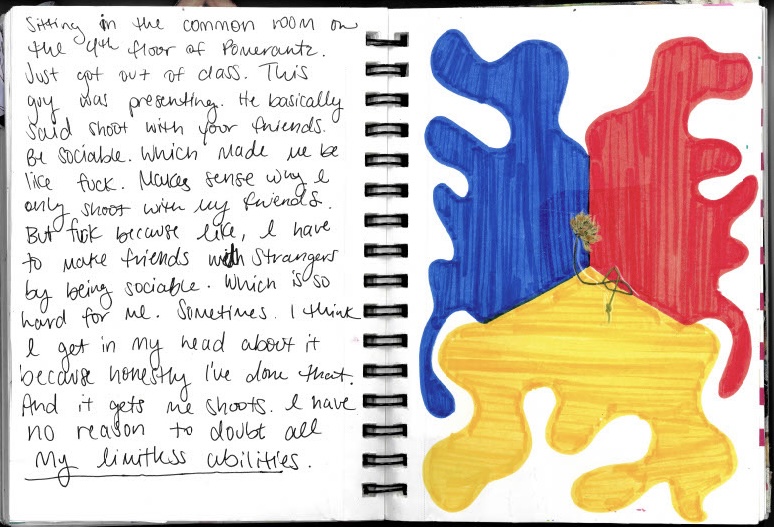 Sitting in the common room on
the 4th floor of Pomerantz.
Just got out of class. This
guy was presenting. He basically
said shoot with your friends.
Be sociable. Which made me be
like fuck. Makes sense why I
only shoot with my friends.
But fuck because like, I have
to make friends with strangers
by being sociable. Which is so
hard for me. Sometimes. I think
I get in my head about it
because honestly I've done that.
And it gets me shoots. I have
no reason to doubt all
my limitless abilities.